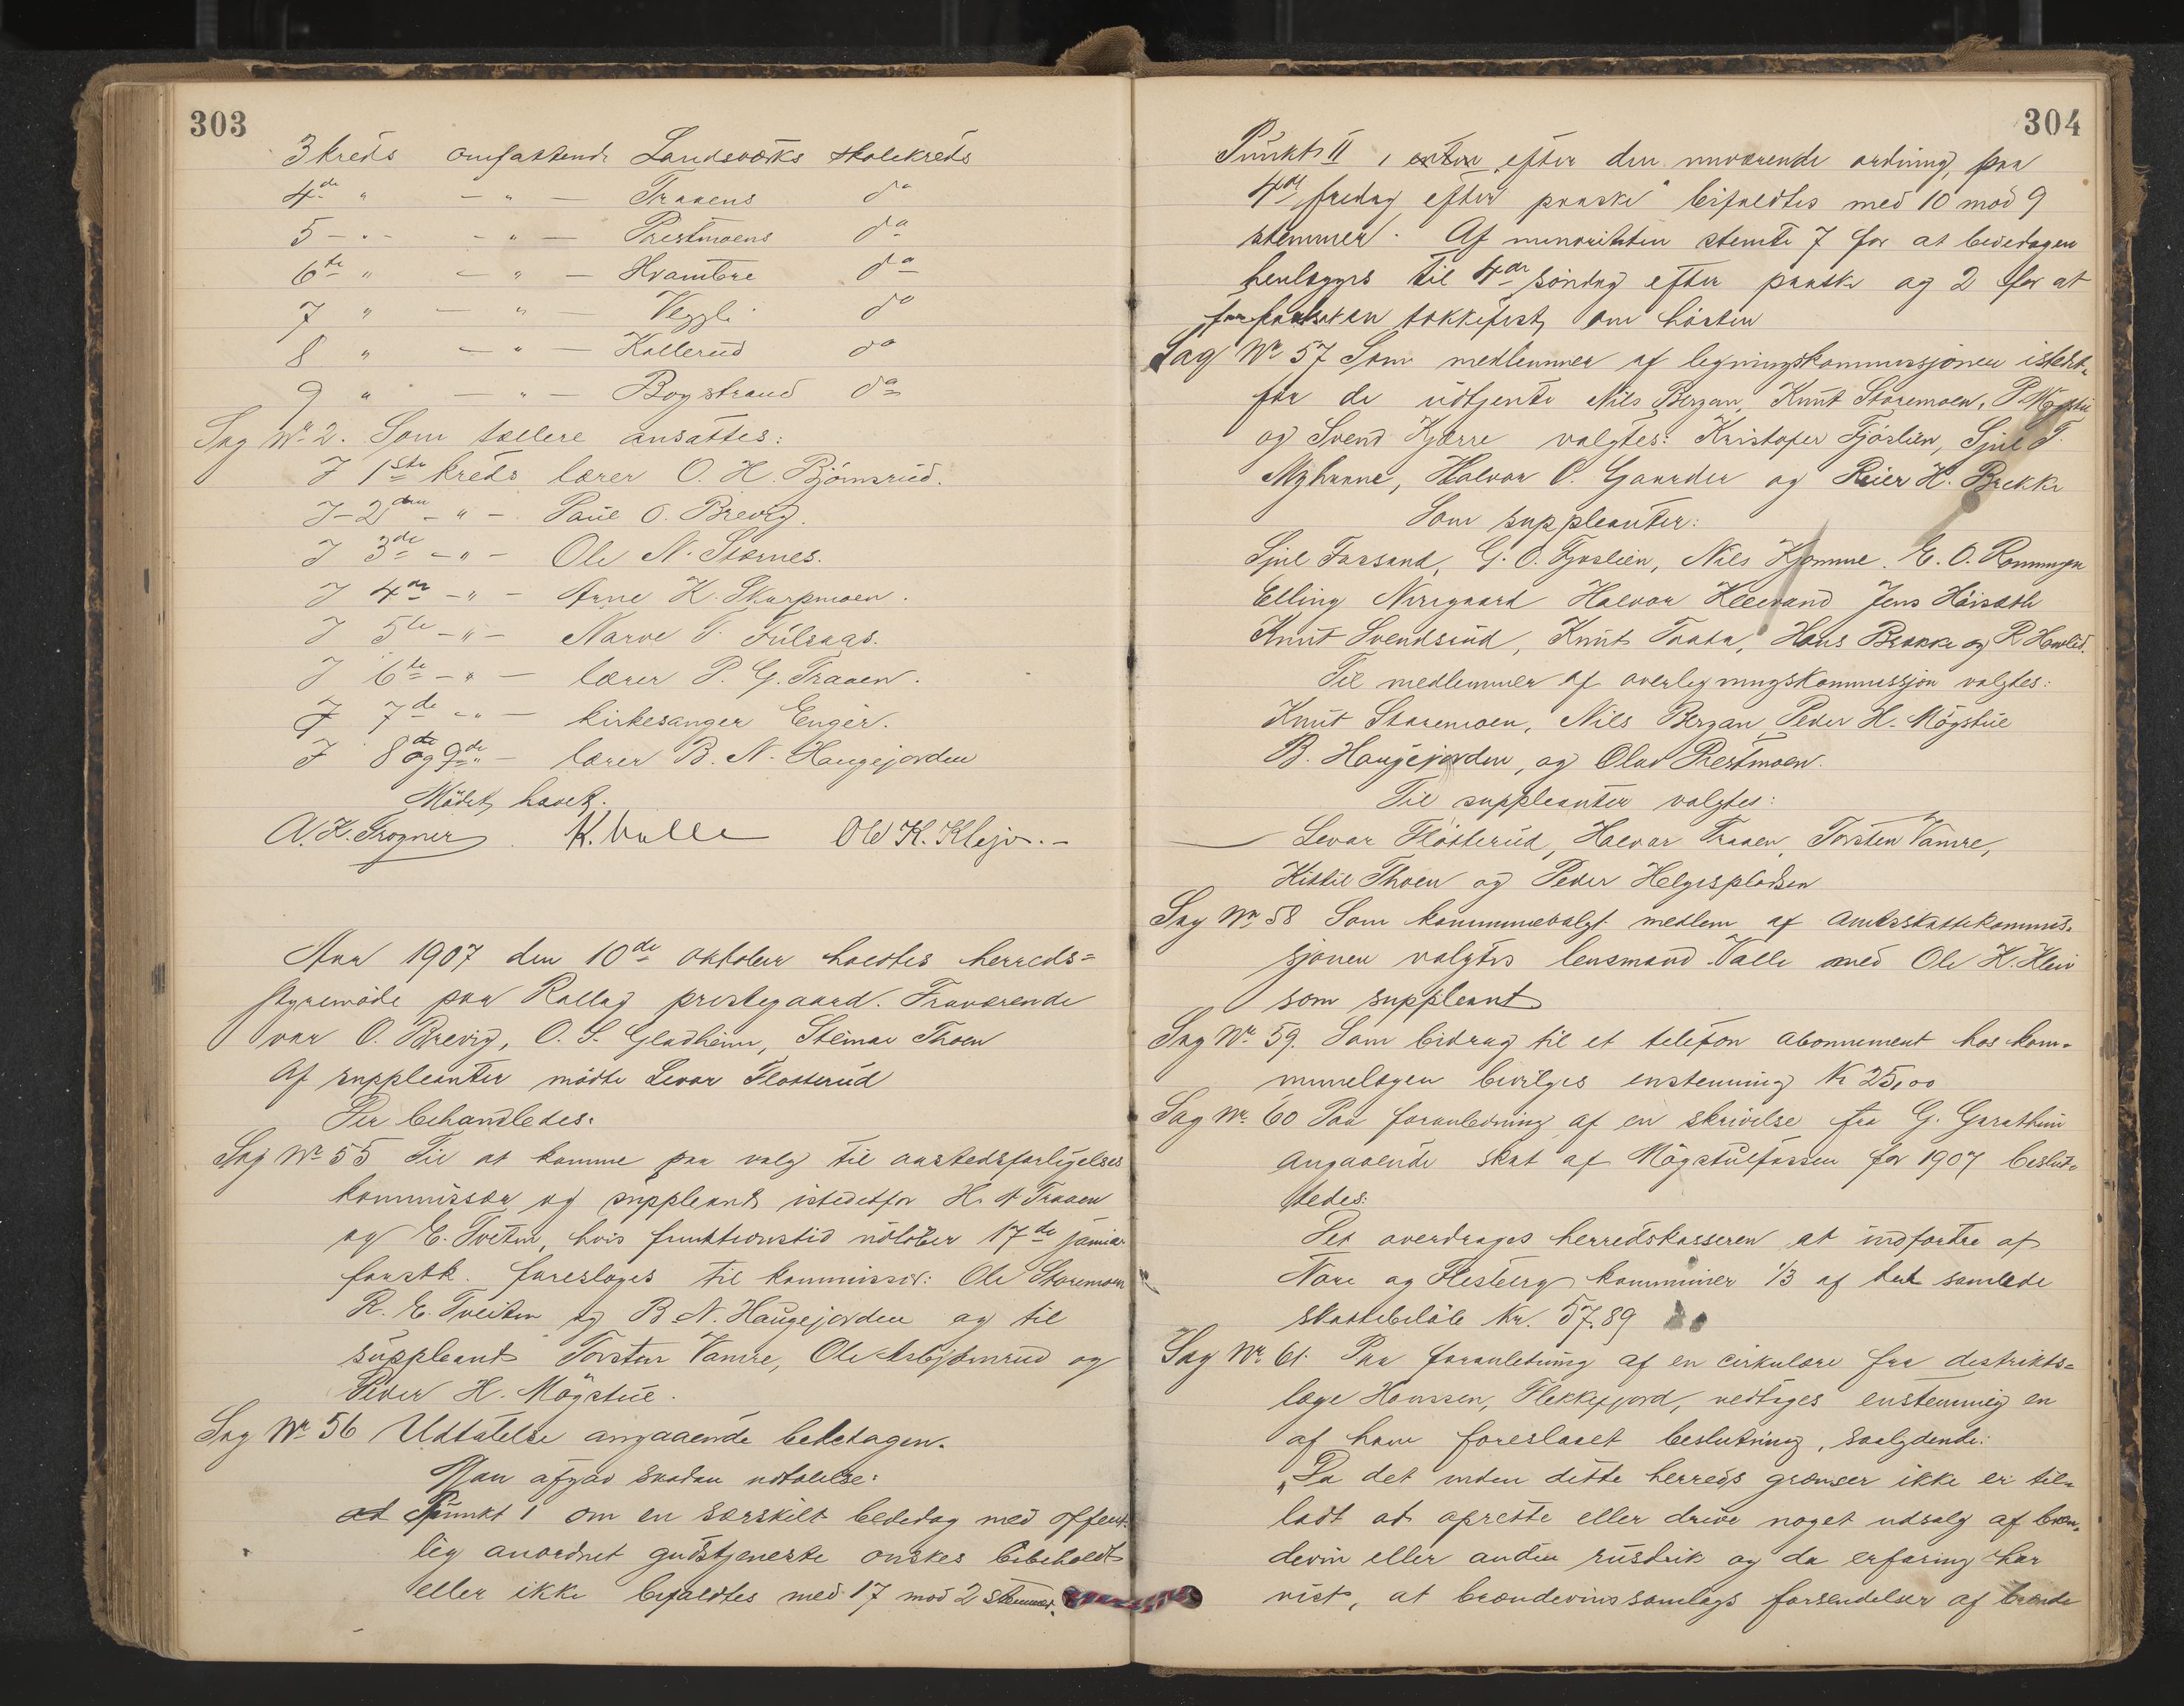 303
3 kreds omfattende Landsværks skolekreds
4de " — " — Traaens do
5 - " - - " — Prestmoens do
6te " — " — Hvambre do
7 " — " — Veggli do
8 " — " — Kallerud do
9 " — " — Bogstrand do
Sag No 2. Som tællere ansattes:
I 1ste kreds lærer O. H. Bjömsrud.
I - 2den - " - Paul O. Brevig.
I 3de - " - Ole N. Stærnes.
I 4de - " - Arne K. Skarpmoen.
I 5te - " - Narve T. Fulsaas.
I 6te - " - lærer P. G. Traaen.
I 7de - " - kirkesanger Enger.
I 8de og 9de " - lærer B. N. Haugejorden
Mödet hævet.
A. K. Trogner K. Valle Ole K. Klejv.-
Aar 1907 den 10de oktober holdtes herreds=
styremöde paa Rollag prestegaard. Fraværende
var O. Brevig, O. S. Gladheim, Steinar Thoen
Af suppleanter mödte Levor Flosterud
Der behandledes:
Sag No 55 Til at komme paa valg til aastedsforligelses
kommissær og suppleant istedetfor H. A Traaen
og E. Tveten, hvis funktionstid udlöber 17de januar
förstk. foreslages til kommissær: Ole Storemoen
R. E. Tveiten og B. N. Haugejorden og til
suppleant Torsten Vamre, Ole Asbjömrud og
Peder H. Mögstue.
Sag No 56 Udtalelse angaaende bededagen.
Man afgav saadan udtalelse:
ad Punkt 1 om en særskilt bededag med offent-
lig anordnet gudstjeneste önskes bibeholdt
eller ikke bifaldtes med 17 mod 2 stemmer.
304
Punkt II, enten efter den nuværende ordning, paa
4de fredag efter paaske" bifaldtes med 10 mod 9
stemmer. Af minoriteten stemte 7 for at bededagen
henlægges til 4de söndag efter paaske og 2 for at
en takkefest om hösten
Sag No 57 Som medlemmer af ligningskommissjonen istedet-
for de udtjente Nils Bergan, Knut Storemoen, P. Mögstue
og Svend Kjærre valgtes: Kristofer Fjöslien, Sjul T.
Myhrane, Halvor O. Gaarder og Reier H. Brekke
Som suppleanter:
Sjul Fossand, G. O. Fjöslien, Nils Kjomme. E. O. Rommegn
Elling Nirigaard Halvor Kleivand Jens Höisæth
Knut Svendsrud, Knut Traaen, Hans Brekke og R Hvæled.
Til medlemmer af overligningskommissjon valgtes:
Knut Storemoen, Nils Bergan, Peder H. Mögstue
B. Haugejorden, og Olav Prestmoen.
Til suppleanter valgtes:
Levor Flösterud, Halvor Traaen, Torsten Vamre,
Kittil Thoen og Peder Helgesplassen
Sag No 58 Som kommunevalgt medlem af amtsskattekommis-
sjonen valgtes lensmand Valle med Ole K. Kleiv
som suppleant
Sag No 59. Som bidrag til et telefon abonnement hos kom-
munelægen bevilges enstemmig Kr 25,00
Sag No 60 Paa foranledning af en skrivelse fra G. Garathun
angaaende skat af Mögstufossen for 1907 beslut-
tedes:
Det overdrages herredskasseren at indfordre af
Nore og Flesberg kommuner 1/3 af det samlede
skattebelöb Kr. 57.89
Sag No 61. Paa foranledning af en cirkulære fra distrikts=
læge Hanssen, Flekkefjord, vedtages enstemmig en
af ham foreslaaet beslutning, saalydende:
"Da det inden dette herreds grænser ikke er til-
ladt at oprette eller drive noget udsalg af bræn-
devin eller anden rusdrik og da erfaring har
vist, at brændevinssamlags forsendelser af brænde